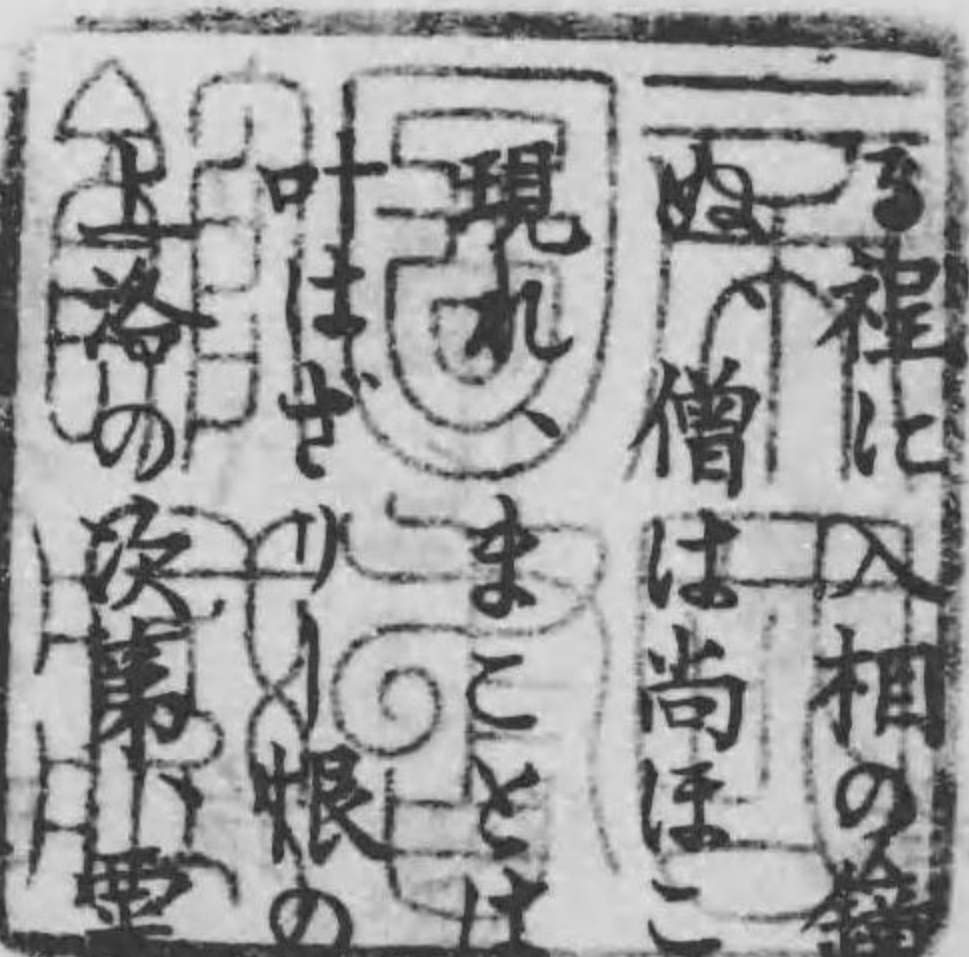 る程に入相の鐘
ぬ、僧は尚ほこ
現れ、まことは
叶はざりし恨の
上洛の次第、霊